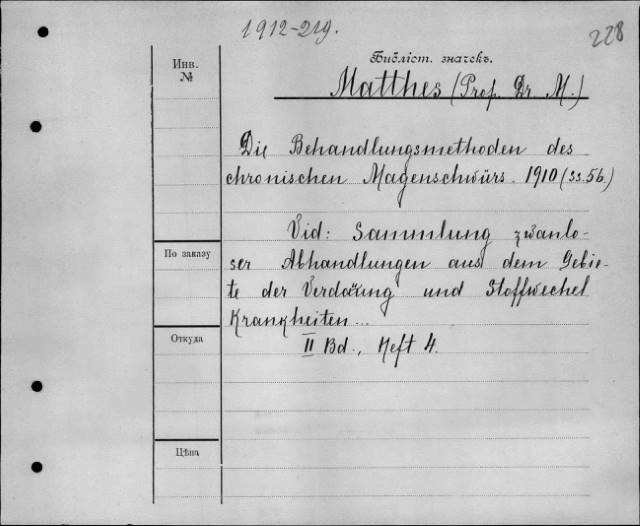 1912-219.
228
Библіот. значекъ.
Инв.
№
Matthes (Prof. Dr. M.)
Die Behandlungsmethoden des
chronischen Magenschwürs. 1910 (ss. 56.)
Vid: Sammlung zwanlo-
ser Abhandlungen aus dem Gebie-
По заказу
te der Verdaung und Stoffwechel
Krankheiten...
Откуда
II Bd., Heft 4.
Цѣна